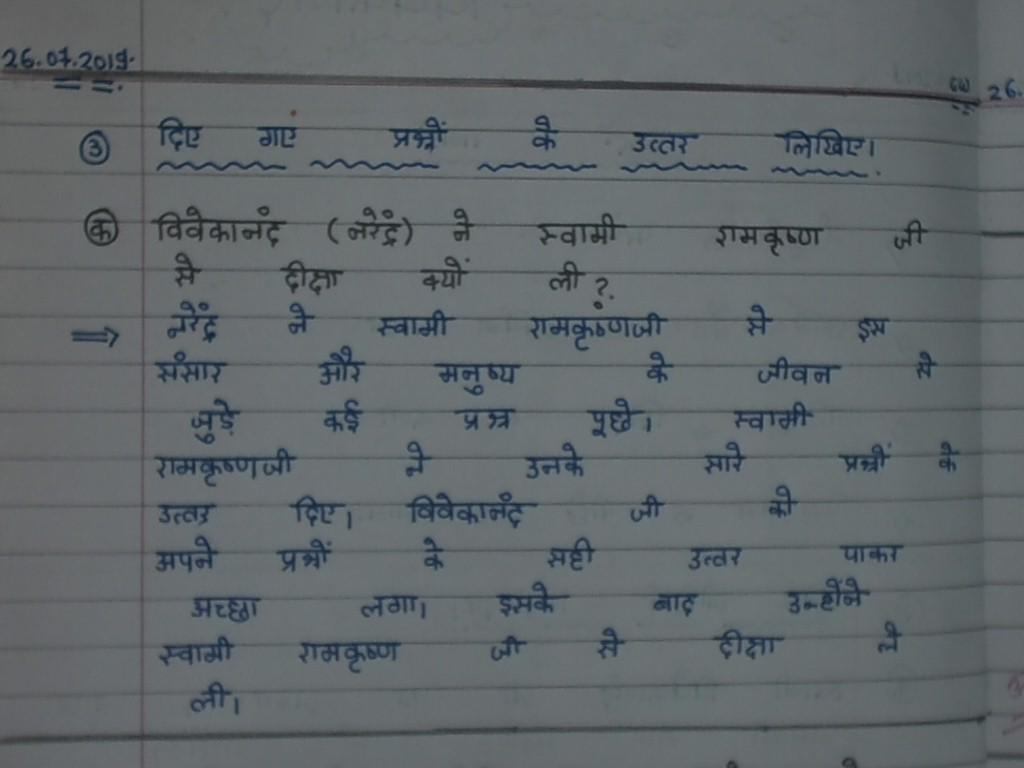 26.07.2019.
CW 26.
③ दिए गएं प्रश्नों के उत्तर लिखिए।
क विवेकानंद (नरेंद्र) ने स्वामी रामकृष्ण जी
से दीक्षा क्यों ली ?
⇒ नरेंद्र ने स्वामी रामकृष्णजी से इस
संसार और मनुष्य के जीवन से
जुड़े कई प्रश्न पूछे। स्वामी
रामकृष्णजी ने उनके सारे प्रश्नों के
उत्तर दिए। विवेकानंद जी को
अपने प्रश्नों के सही उत्तर पाकर
अच्छा लगा। इसके बाद उन्होंने
स्वामी रामकृष्ण जी से दीक्षा ले
ली।